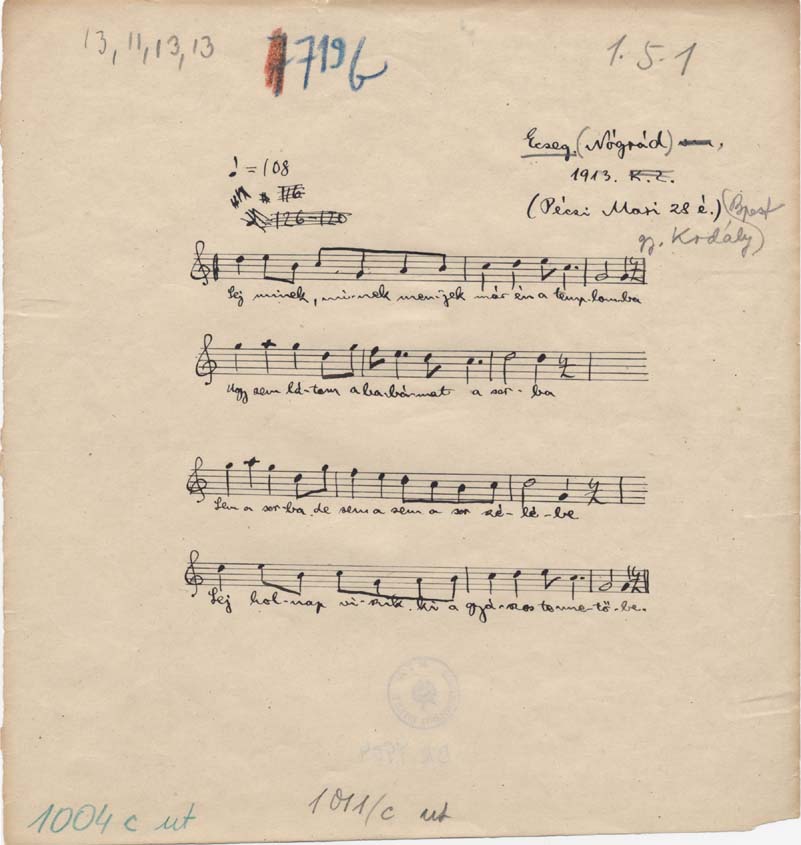 13, 11, 13, 13
7719b
1.5.1
Ecseg, (Nógrád)
♩ = 108
116
126-120
1913. K. Z.
(Pécsi Mari 28 é.) (Bpest
gy. Kodály)
Sej minek, mi-nek men-jek már én a temp-lom-ba
Ugy sem lá-tom a ba-bá-mat a sor-ba
Sem a sor-ba de sem a sem a sor szé-lé-be
Sej hol-nap vi-szik ki a gyá-szos te-me-tő-be.
1004 c ut
1011/c ut